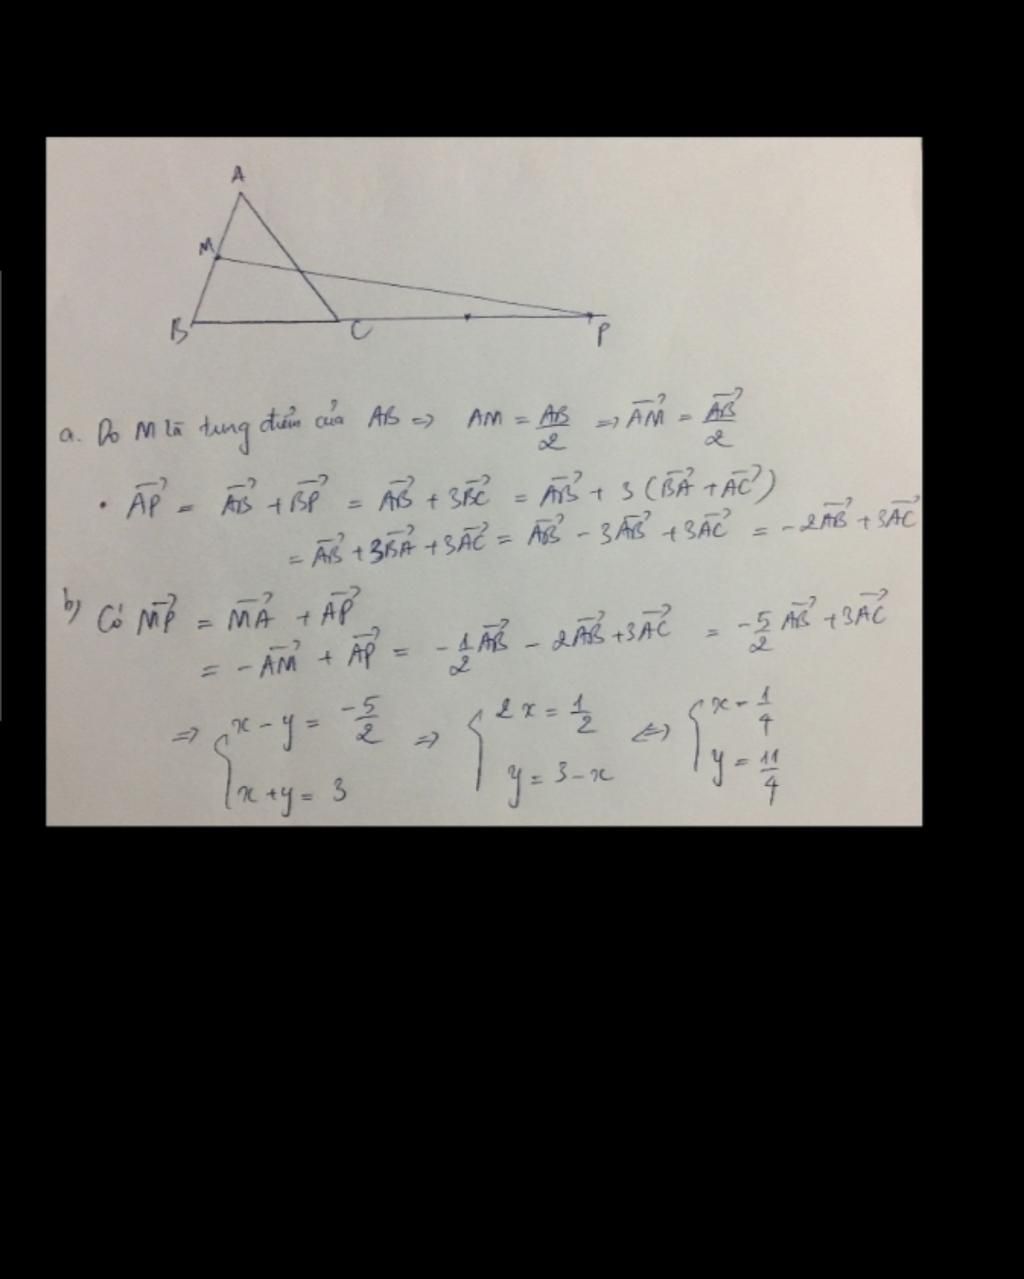 A
M
B
C
P
a. Do M là trung điểm của AB => AM = AB/2 => \vec{AM} = \vec{AB}/2
• \vec{AP} = \vec{AB} + \vec{BP} = \vec{AB} + 3\vec{BC} = \vec{AB} + 3(\vec{BA} + \vec{AC})
= \vec{AB} + 3\vec{BA} + 3\vec{AC} = \vec{AB} - 3\vec{AB} + 3\vec{AC} = -2\vec{AB} + 3\vec{AC}
b) Có \vec{MP} = \vec{MA} + \vec{AP}
= -\vec{AM} + \vec{AP} = -1/2 \vec{AB} - 2\vec{AB} + 3\vec{AC} = -5/2 \vec{AB} + 3\vec{AC}
=> { x - y = -5/2 => { 2x = 1/2 <=> { x = 1/4
x + y = 3 y = 3 - x y = 11/4